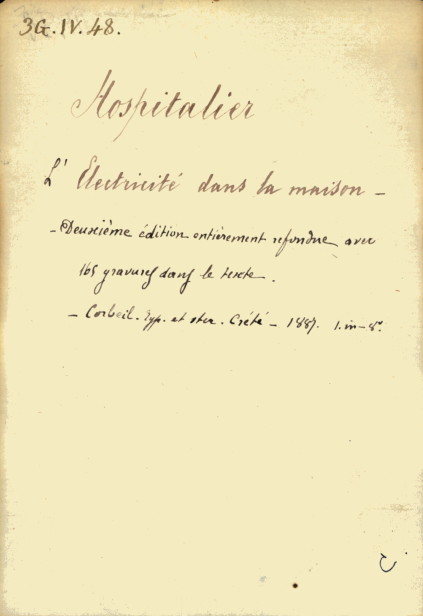 3G.IV.48.
Hospitalier
L' Electricité dans la maison –
– Deuxième édition entièrement refondue avec
165 gravures dans le texte.
– Corbeil. Typ. et ster. Crété – 1887. 1.in–8°.